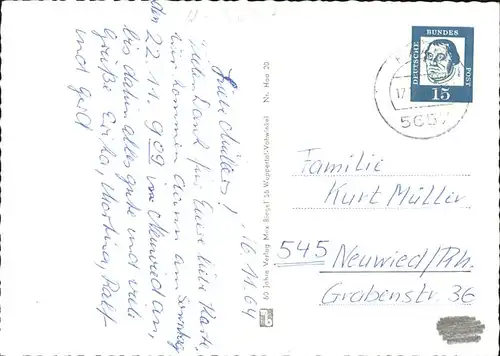 16.11.64
Liebe Müllers!
Vielen Dank für Eure liebe Karte,
wir kommen dann am Sonntag
den 22.11. 9 09 in Neuwied an,
bis dahin alles gute und viele
Grüße Erika, Martina, Ralf
und Gerd
60 Jahre Verlag Max Biegel 56 Wuppertal-Vohwinkel Nr. Hao 20
DEUTSCHE BUNDES POST
15
17
565
Familie
Kurt Müller
545 Neuwied/Rh.
Grabenstr. 36